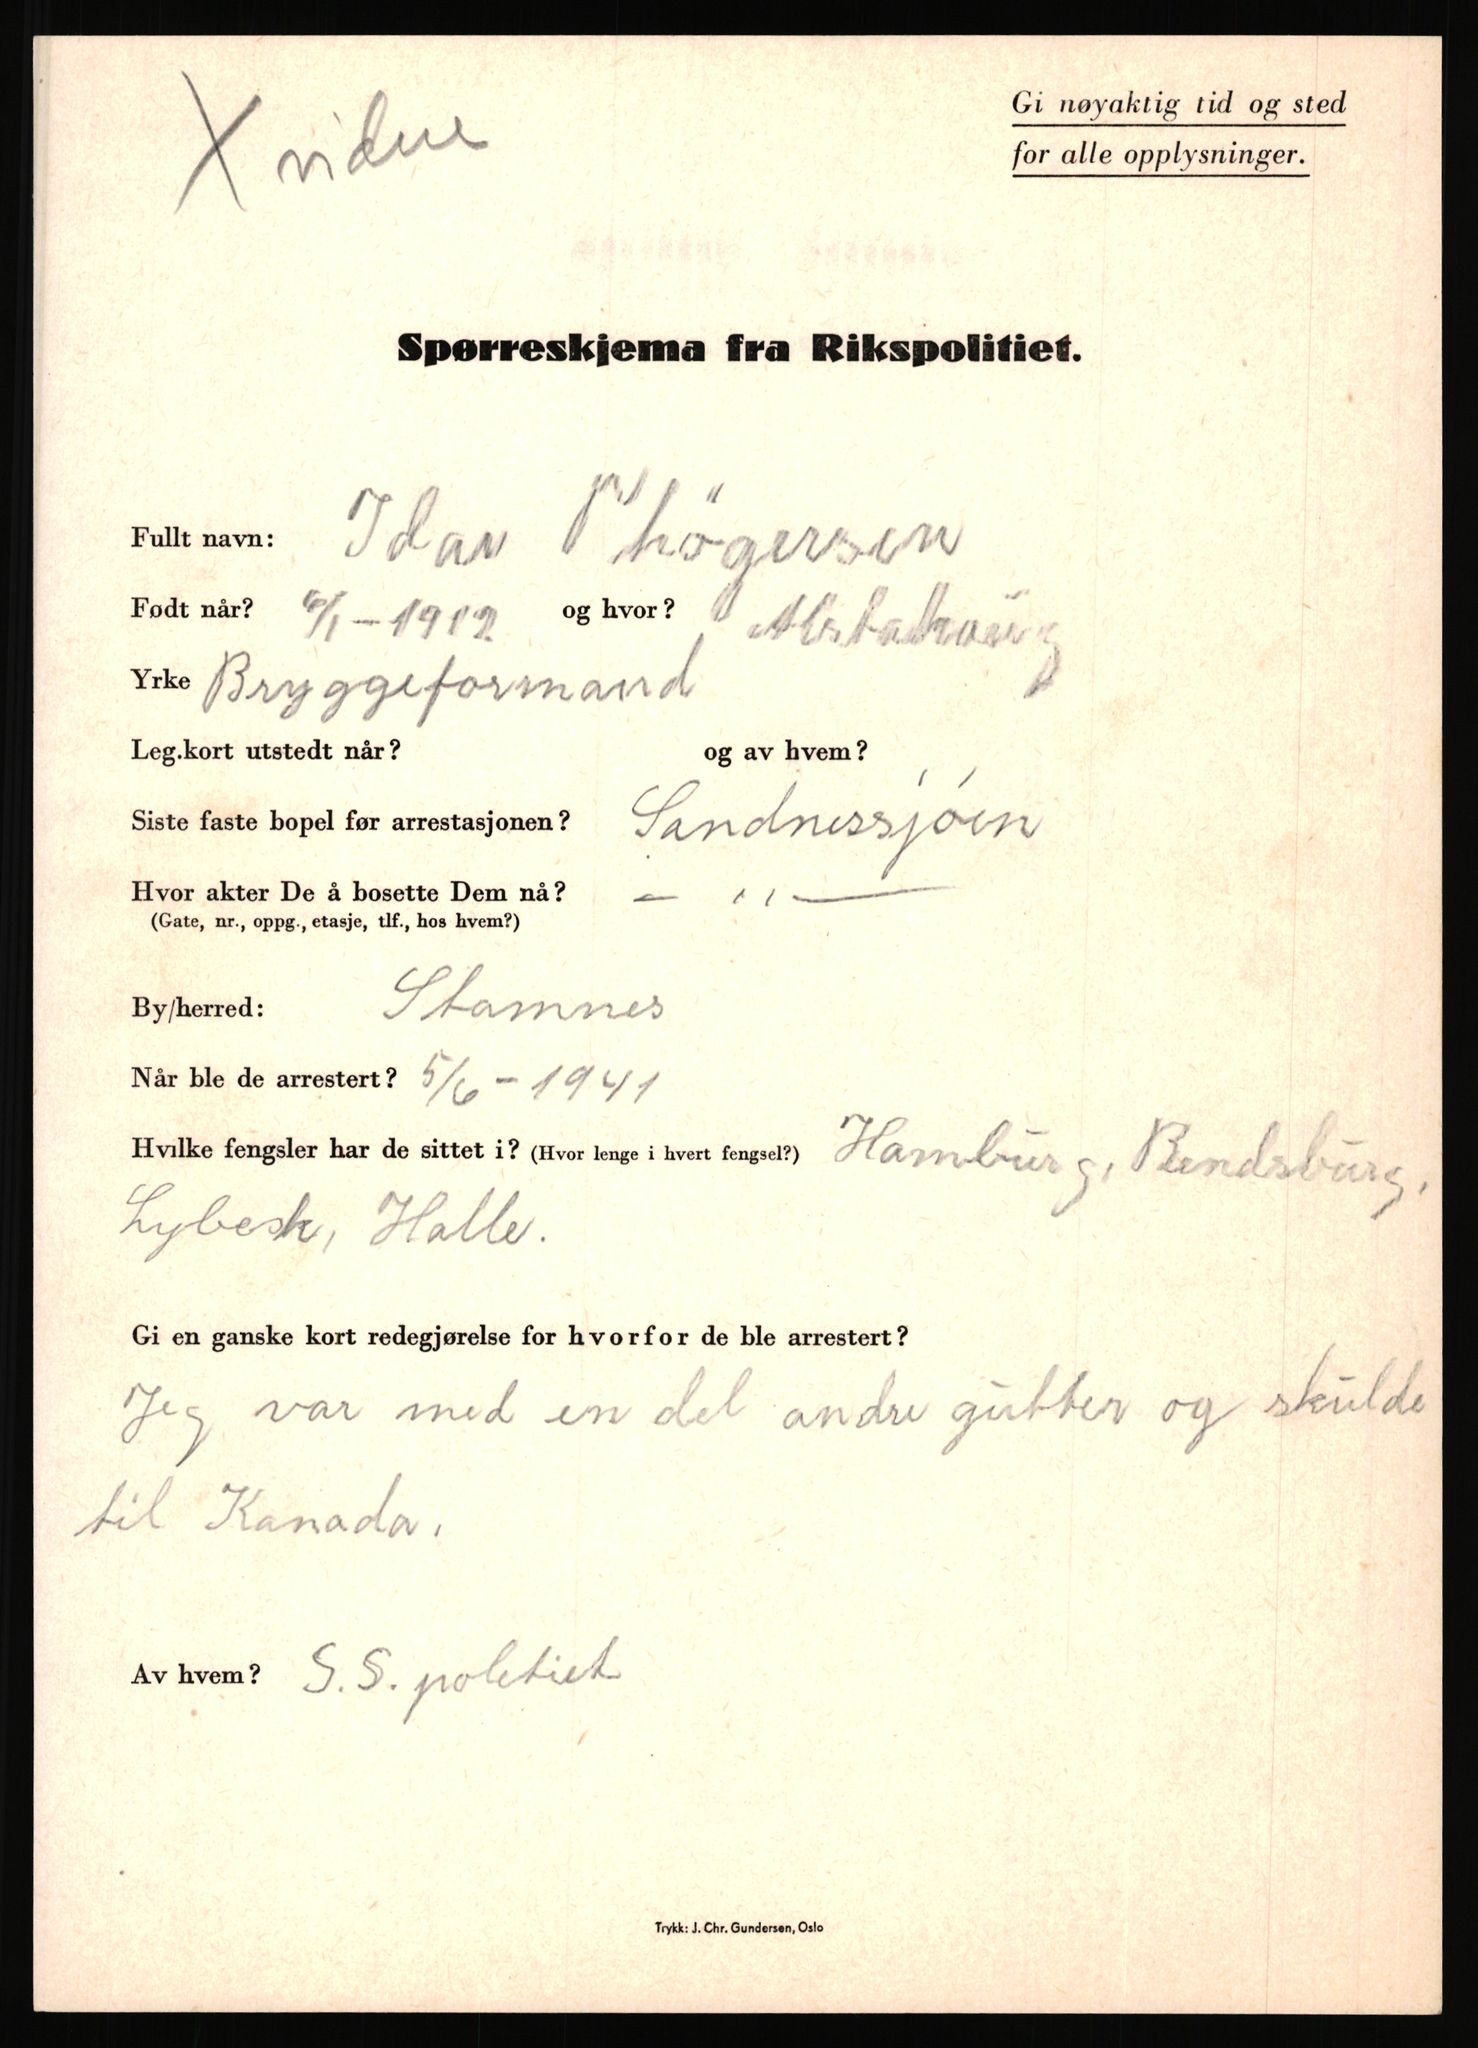 X vidne
Gi nøyaktig tid og sted
for alle opplysninger.
Spørreskjema fra Rikspolitiet.
Fullt navn: Idar Thögersen
Født når? 6/1 - 1912 og hvor? Alstahaug
Yrke Bryggeformand
Leg.kort utstedt når? og av hvem?
Siste faste bopel før arrestasjonen? Sandnessjóen
Hvor akter De å bosette Dem nå? — ,, —
(Gate, nr., oppg., etasje, tlf., hos hvem?)
By/herred: Stamnes
Når ble de arrestert? 5/6 - 1941
Hvilke fengsler har de sittet i? (Hvor lenge i hvert fengsel?) Hamburg, Rendsburg,
Lybesk, Halle.
Gi en ganske kort redegjørelse for hvorfor de ble arrestert?
Jeg var med en del andre gutter og skulde
til Kanada.
Av hvem? S.S. poletiet
Trykk: J. Chr. Gundersen, Oslo